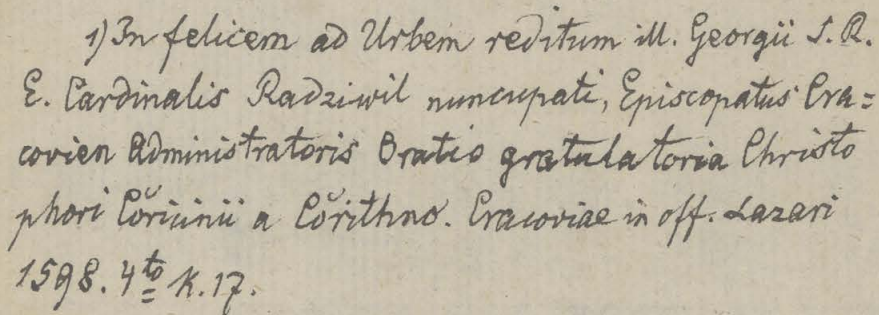 1) In felicem ad Urbem reditum ill. Georgii S. R.
E. Cardinalis Radziwil nuncupati, Episcopatus Cra=
covien Administratoris Oratio gratulatoria Christo
phori Coricinii a Corithno. Cracoviae in off. Lazari
1598. 4to K. 17.